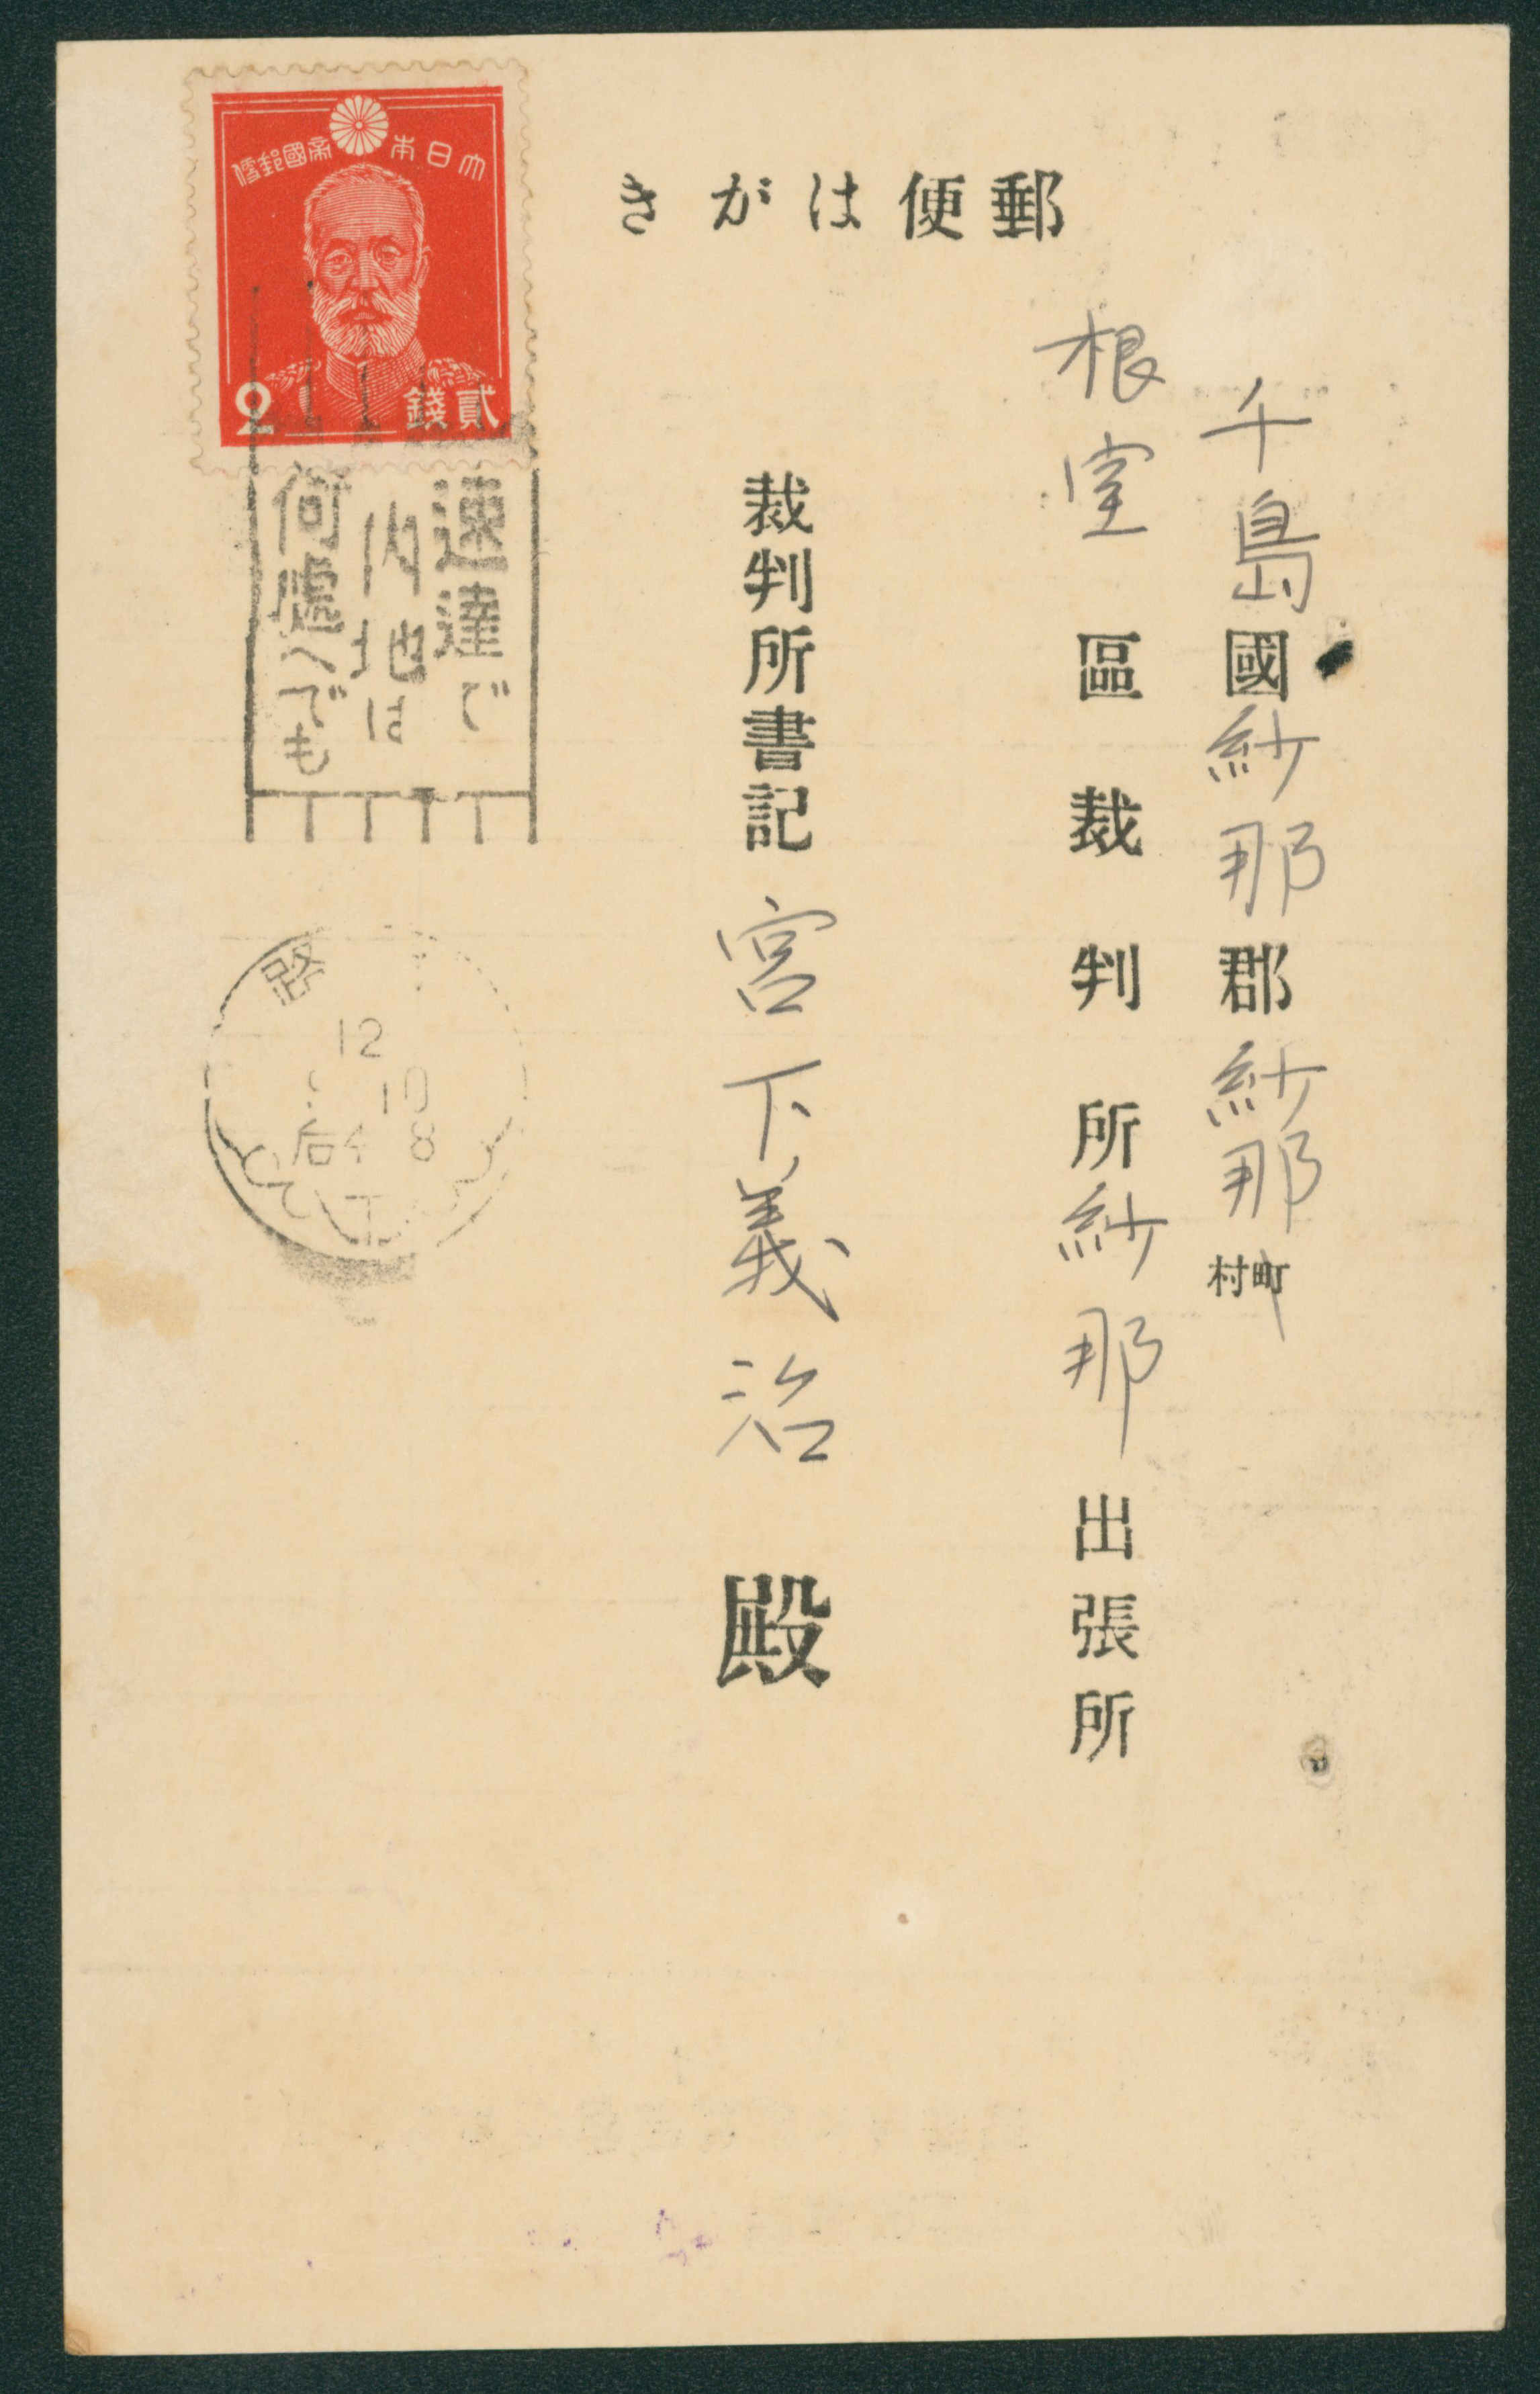 郵便はがき
大日本帝國郵便
2 貳錢
千島國紗那郡紗那町村
根室區裁判所紗那出張所
裁判所書記宮下義治殿
速達で
内地は
何處へでも
路
12
10
后 8